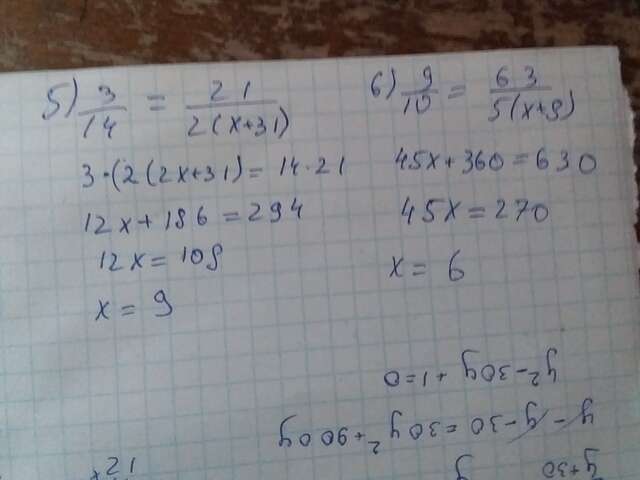 5) 3/14 = 21/2(x+31)
3·(2(2x+31) = 14·21
12x + 186 = 294
12x = 108
x = 9
6) 9/10 = 63/5(x+8)
45x + 360 = 630
45x = 270
x = 6
y² - 30y + 1 = 0
y - y - 30 = 30y² + 900y
y+30 y